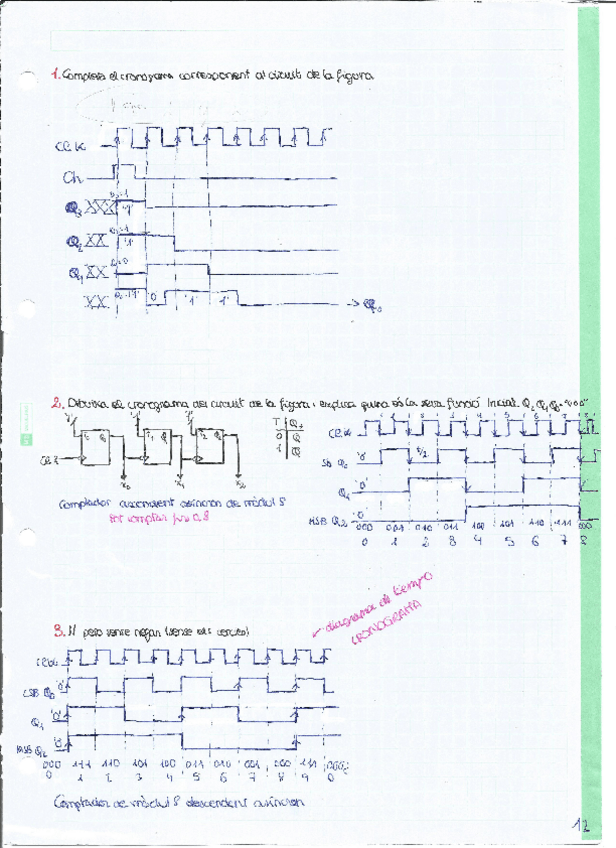 1. Completa el cronograma corresponent al circuit de la figura
CLK
Ch
Q3 XXX '1'
Q2 XX '1'
Q1 XX
XX '0' '1' '1' → Q0
2. Dibuixa el cronograma del circuit de la figura i explica quina és la seva funció Inicial Q2 Q1 Q0 = "000"
T Q+
0 Q
1 Q̅
x0 x1 x2
Comptador ascendent asíncron de mòdul 8
pot comptar fins a 8
CLK
Q0 '0'
Q1 '0'
MSB Q2 '0'
000 001 010 011 100 101 110 111 000
0 1 2 3 4 5 6 7 8
diagrama de tiempo
CRONOGRAMA
3. Il però sense negar (sense els cercles)
CLK
LSB Q0 '0'
Q1 '0'
MSB Q2 '0'
000 111 110 101 100 011 010 001 000 111 000
0 1 2 3 4 5 6 7 8 9 0
Comptador de mòdul 8 descendent asíncron
12